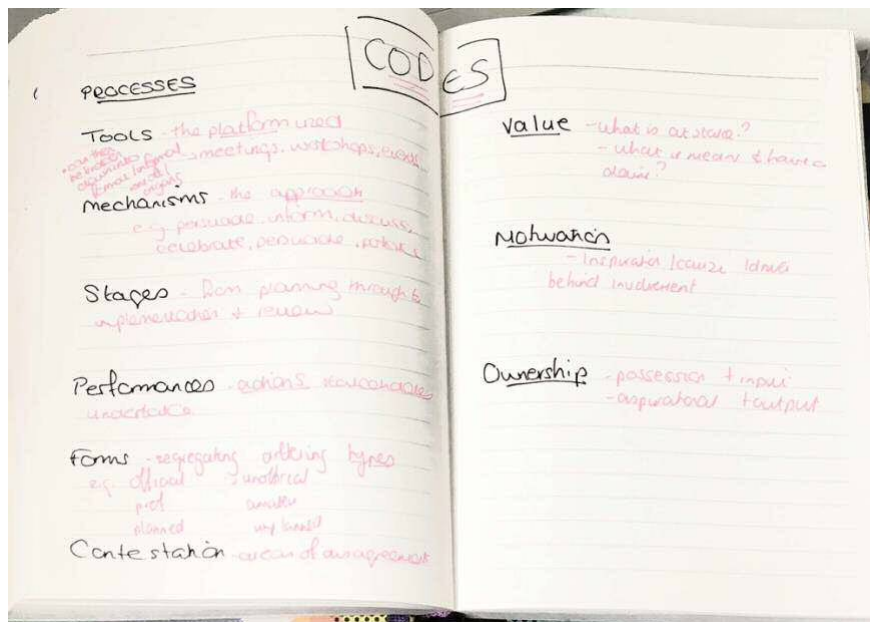 CODES
PROCESSES
TOOLS - the platform used
meetings, workshops, events
Mechanisms - the approach
e.g. persuade, inform, discuss,
celebrate, persuade, 
Stages - from planning through to
implementation + review
Performances - actions
undertake
Forms - segregating differing types
e.g. official unofficial
prof amateur
planned unplanned
Contestation - areas of disagreement
Value - what is at stake?
- what is meant & have a
claim?
Motivation
- Inspiration / cause / drives
behind involvement
Ownership - possession + input
- aspirational + output